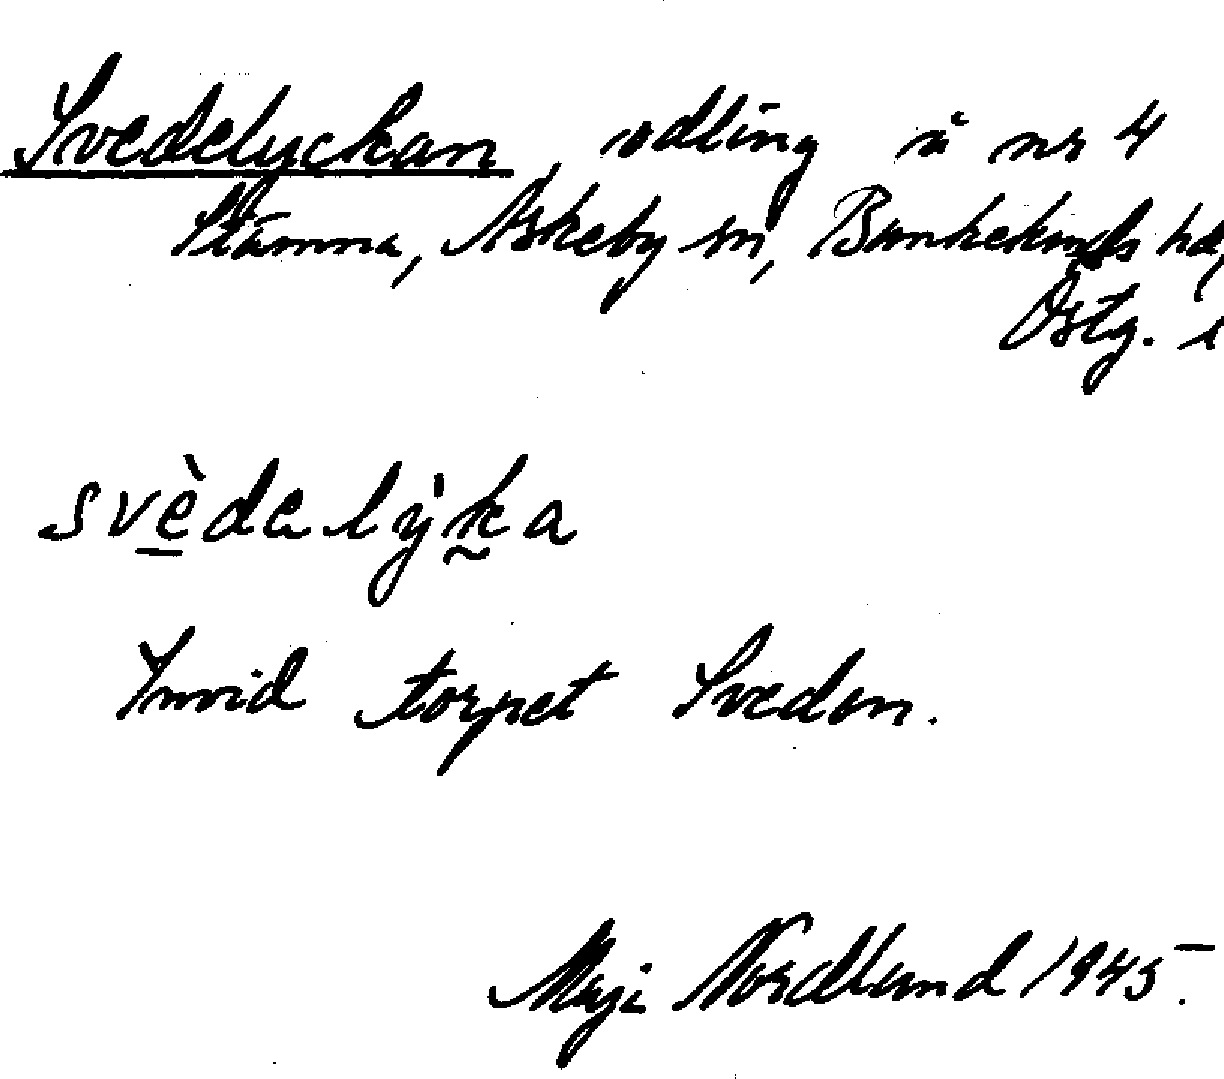 Svedelyckan, odling å nr 4
Stämma, Askeby sn, Bankekinds hd,
Östg.
svèdalýka
Invid torpet Sveden.
Maji Nordlund 1945.